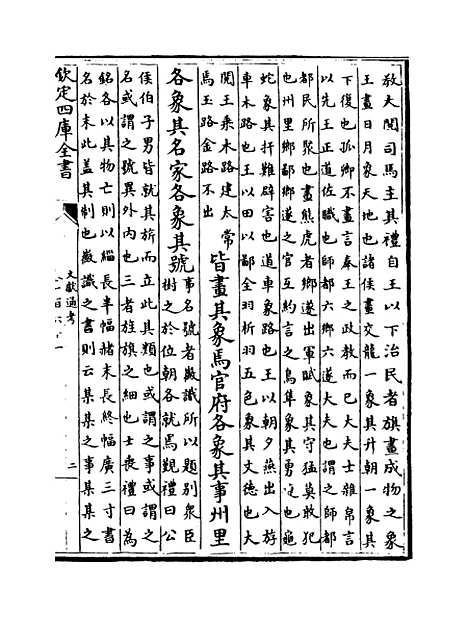 教大閱司馬主其禮自王以下治民者旗畫成物之象
王畫日月象天地也諸侯畫交龍一象其升朝一象其
下復也孤卿不畫言奉王之政教而已大夫士雜帛言
以先王正道佐職也師都六鄉六遂大夫也謂之師都
都民所聚也畫熊虎者鄉遂出軍賦象其守猛莫敢犯
也州里鄉鄙鄉遂之官互約言之鳥隼象其勇也龜
蛇象其扞難辟害也道車象路也王以朝夕燕出入斿
車木路也王以田以鄙全羽析羽五色象其文德也大
閱王乘木路建太常
焉玉路金路不出
皆畫其象焉官府各象其事州里
各象其名家各象其號
事名號者徽識所以題別衆臣
樹之於位朝各就焉覲禮曰公
侯伯子男皆就其旂而立此其類也或謂之事或謂之
名或謂之號異外内也三者旌旗之細也士喪禮曰為
銘各以其物亡則以緇長半幅赬末長終幅廣三寸書
名於末此蓋其制也徽識之書則云某某之事某某之
欽定四庫全書
文獻通考
二